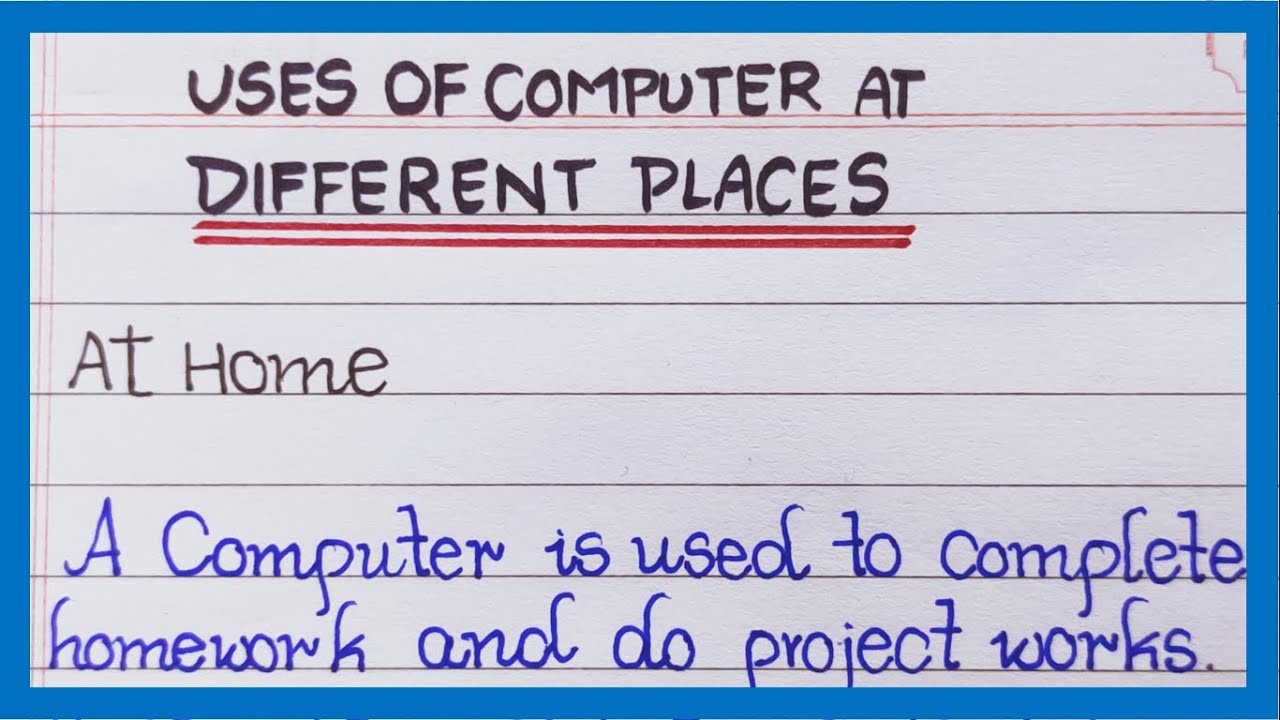 USES OF COMPUTER AT
DIFFERENT PLACES
At Home
A Computer is used to complete
homework and do project works.